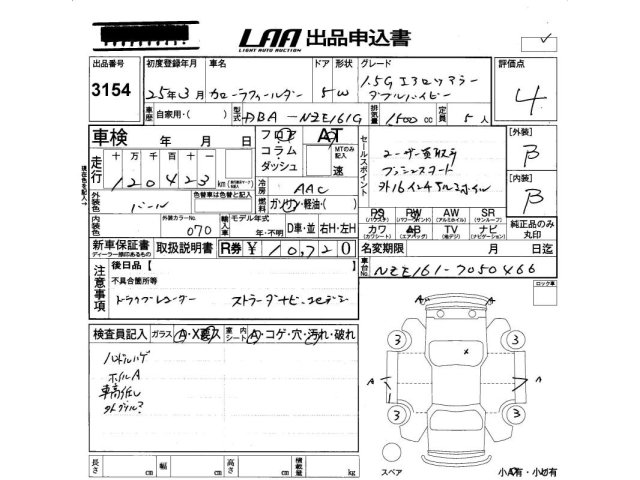 LAA 出品申込書
LIGHT AUTO AUCTION
出品番号 初度登録年月 車名 ドア 形状 グレード 評価点
3154 25年3月 カローラフィールダー 5W 1.5G エアロツアラー 4
ダブルバイビー
車歴 自家用・( ) 型式 DBA-NZE161G 排気量 1500cc 定員 5人
車検 年 月 日
フロア AT
コラム MTのみ記入
ダッシュ 速
セールスポイント
ユーザー買取り
プッシュスタート
外16インチアルミホイル
[外装]
B
[内装]
B
走行 十万千百十一
120423 km
現在色を記入→
冷房 AAC
外装色 パール 色替車は色替と記入
燃料 ガソリン・軽油・( )
PS PW AW SR
(パワステ) (パワーウインド) (アルミホイル) (サンルーフ)
カワ AB TV ナビ
(カワシート) (エアバック) (地デジ) (ナビゲーション)
純正品のみ丸印
内装色 外装カラーNo. 070 輸入車 モデル年式 年・不明 D車・並 右H・左H
新車保証書 取扱説明書 R券 ¥ 10,720
ディーラー捺印あるもの
名変期限 月 日迄
車台No. NZE161-7050466
注意事項
後日品【 】
不具合箇所等
ドライブレコーダー ストラーダナビ
ロック車
検査員記入 ガラス A・X要ス 室内シート A・コゲ・穴・汚れ・破れ
ハンドルハゲ
ホイルA
車高低し
外グリル?
A A
3 3
A A
3 3
長さ cm 幅 cm 高さ cm 積載量 kg
スペア 小A有・小U有